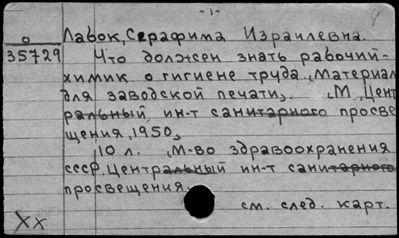 - 1 -
Лавок, Серафима Израилевна.
о
35729
Что должен знать рабочий-
химик о гигиене труда. „Материал
для заводской печати„. М., Цент
ральный, ин-т санитарного просве
щения, 1950,
10 л. „М-во здравоохранения
СССР. Центральный ин-т санитарного
просвещения.
см. след. карт.
Xx